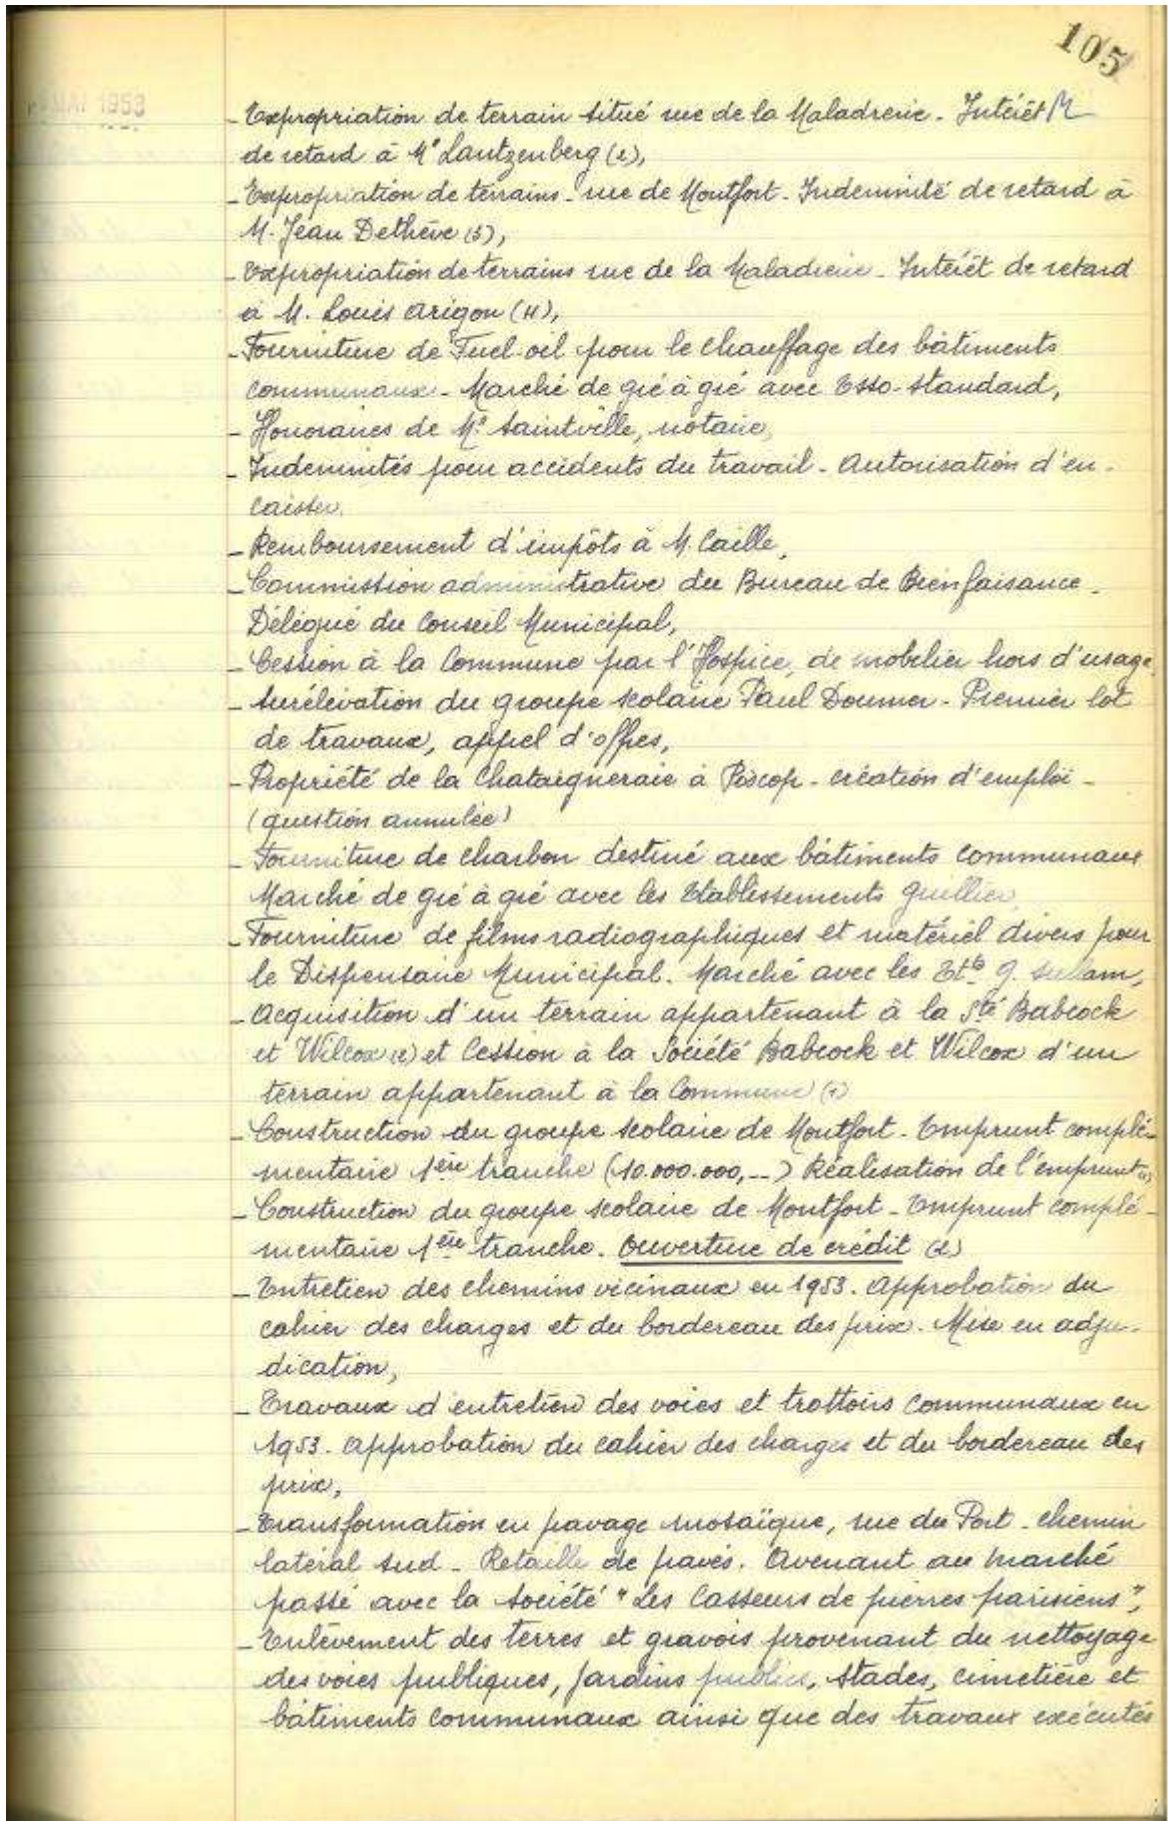 105
MAI 1953
- Expropriation de terrain situé rue de la Maladrerie - Intérêt
de retard à Me Lantzenberg (2),
- Expropriation de terrains - rue de Montfort - Indemnité de retard à
M. Jean Dethève (3),
- Expropriation de terrains rue de la Maladrerie - Intérêt de retard
à M. Louis Arigon (4),
- Fourniture de Fuel-oil pour le chauffage des bâtiments
communaux - Marché de gré à gré avec Esso-Standard,
- Honoraires de Me Saintville, notaire,
- Indemnités pour accidents du travail - Autorisation d'en-
caisser.
- Remboursement d'impôts à M. Caille,
- Commission administrative du Bureau de Bienfaisance -
Délégué du Conseil Municipal,
- Cession à la Commune par l'Hospice, de mobilier hors d'usage,
- Surélévation du groupe scolaire Paul Doumer - Premier lot
de travaux, appel d'offres,
- Propriété de la Chataigneraie à Poscop - création d'emploi -
(question annulée)
- Fourniture de charbon destiné aux bâtiments communaux
Marché de gré à gré avec les Etablissements Guillier,
- Fourniture de films radiographiques et matériel divers pour
le Dispensaire Municipal. Marché avec les Ets G.
- Acquisition d'un terrain appartenant à la Sté Babcock
et Wilcox (2) et Cession à la Société Babcock et Wilcox d'un
terrain appartenant à la Commune
- Construction du groupe scolaire de Montfort - Emprunt complé-
mentaire 1ère tranche (10.000.000,--) Réalisation de l'emprunt
- Construction du groupe scolaire de Montfort - Emprunt complé-
mentaire 1ère tranche. Ouverture de crédit (2)
- Entretien des chemins vicinaux en 1953. Approbation du
cahier des charges et du bordereau des prix. Mise en adju-
dication,
- Travaux d'entretien des voies et trottoirs communaux en
1953. Approbation du cahier des charges et du bordereau des
prix,
- Transformation en pavage mosaïque, rue du Port - chemin
latéral sud - Retaille de pavés. Avenant au marché
passé avec la société "Les Casseurs de pierres parisiens",
- Enlèvement des terres et gravois provenant du nettoyage
des voies publiques, jardins publics, stades, cimetière et
bâtiments communaux ainsi que des travaux exécutés